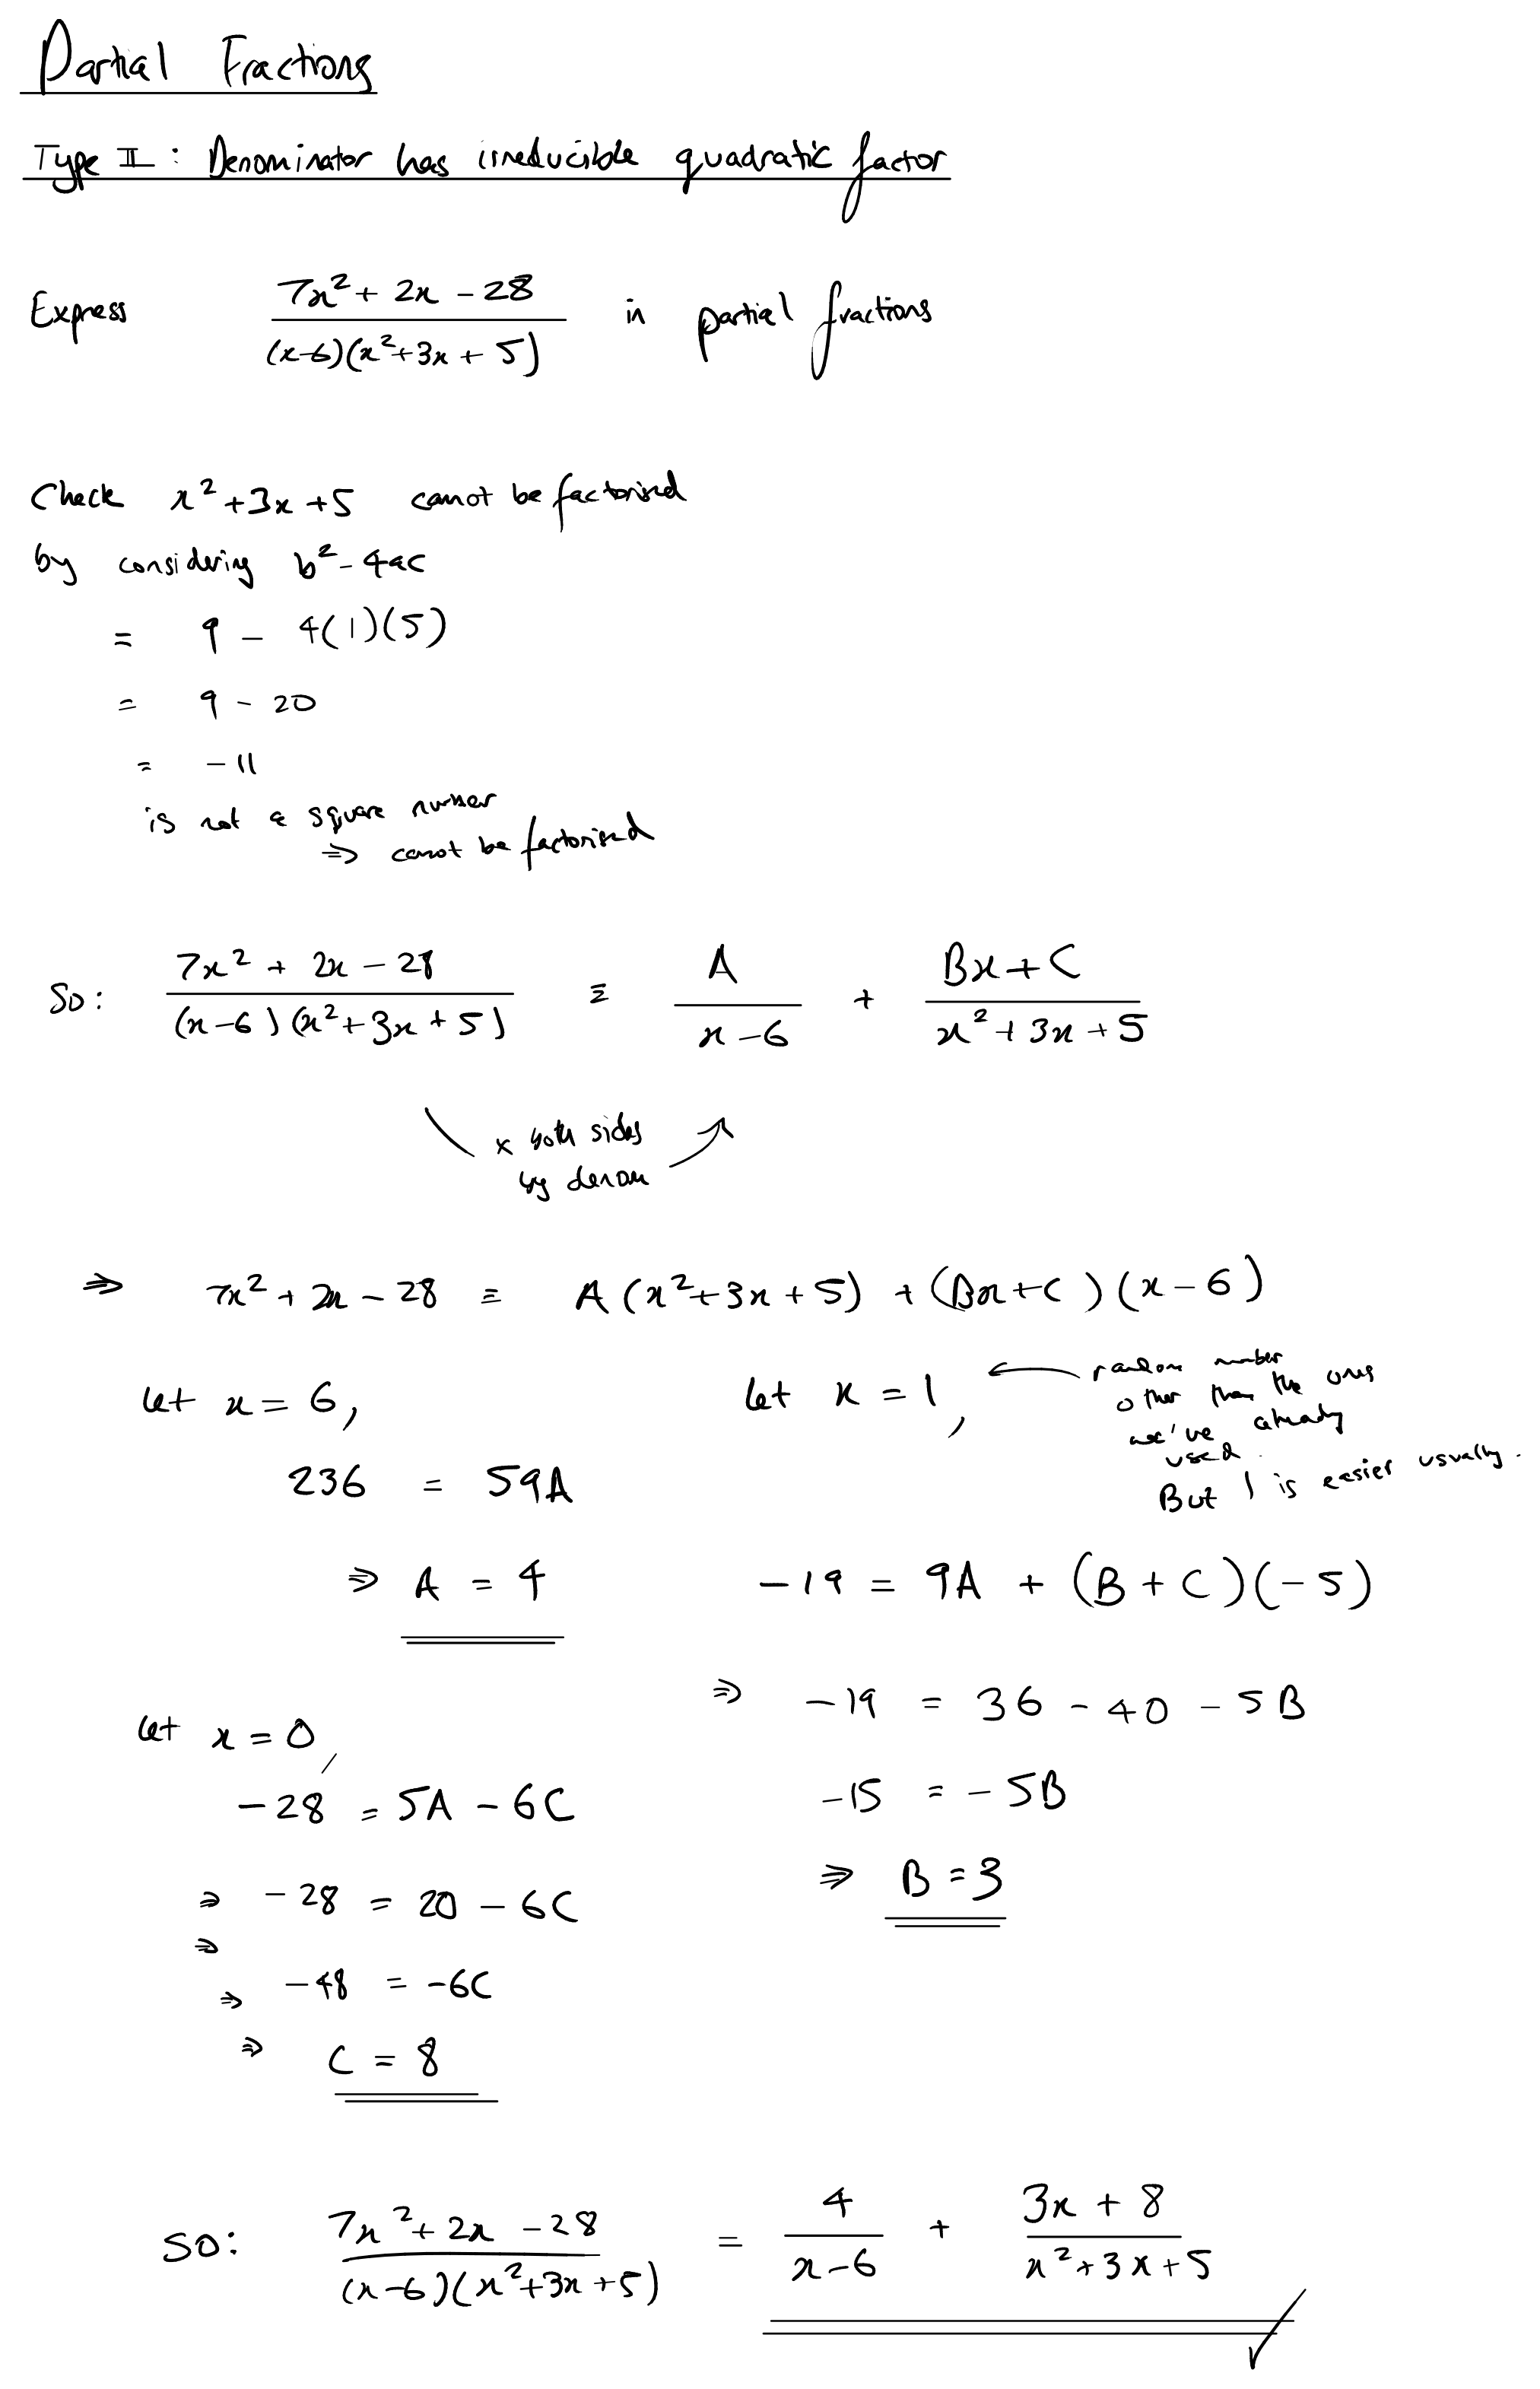 Partial Fractions
Type II : Denominator has irreducible quadratic factor
Express (7x² + 2x - 28)/((x-6)(x²+3x+5)) in partial fractions
Check x²+3x+5 cannot be factorised
by considering b²-4ac
= 9 - 4(1)(5)
= 9 - 20
= -11
is not a square number
⇒ cannot be factorised
So: (7x² + 2x - 28)/((x-6)(x²+3x+5)) ≡ A/(x-6) + (Bx+C)/(x²+3x+5)
x both sides
by denom
⇒ 7x² + 2x - 28 ≡ A(x²+3x+5) + (Bx+C)(x-6)
let x = 6,
236 = 59A
⇒ A = 4
let x = 0,
-28 = 5A - 6C
⇒ -28 = 20 - 6C
⇒
⇒ -48 = -6C
⇒ C = 8
let x = 1,
random number
other than the ones
we've already
used.
But 1 is easier usually.
-19 = 9A + (B+C)(-5)
⇒ -19 = 36 - 40 - 5B
-15 = -5B
⇒ B = 3
So: (7x² + 2x - 28)/((x-6)(x²+3x+5)) = 4/(x-6) + (3x+8)/(x²+3x+5) ✓